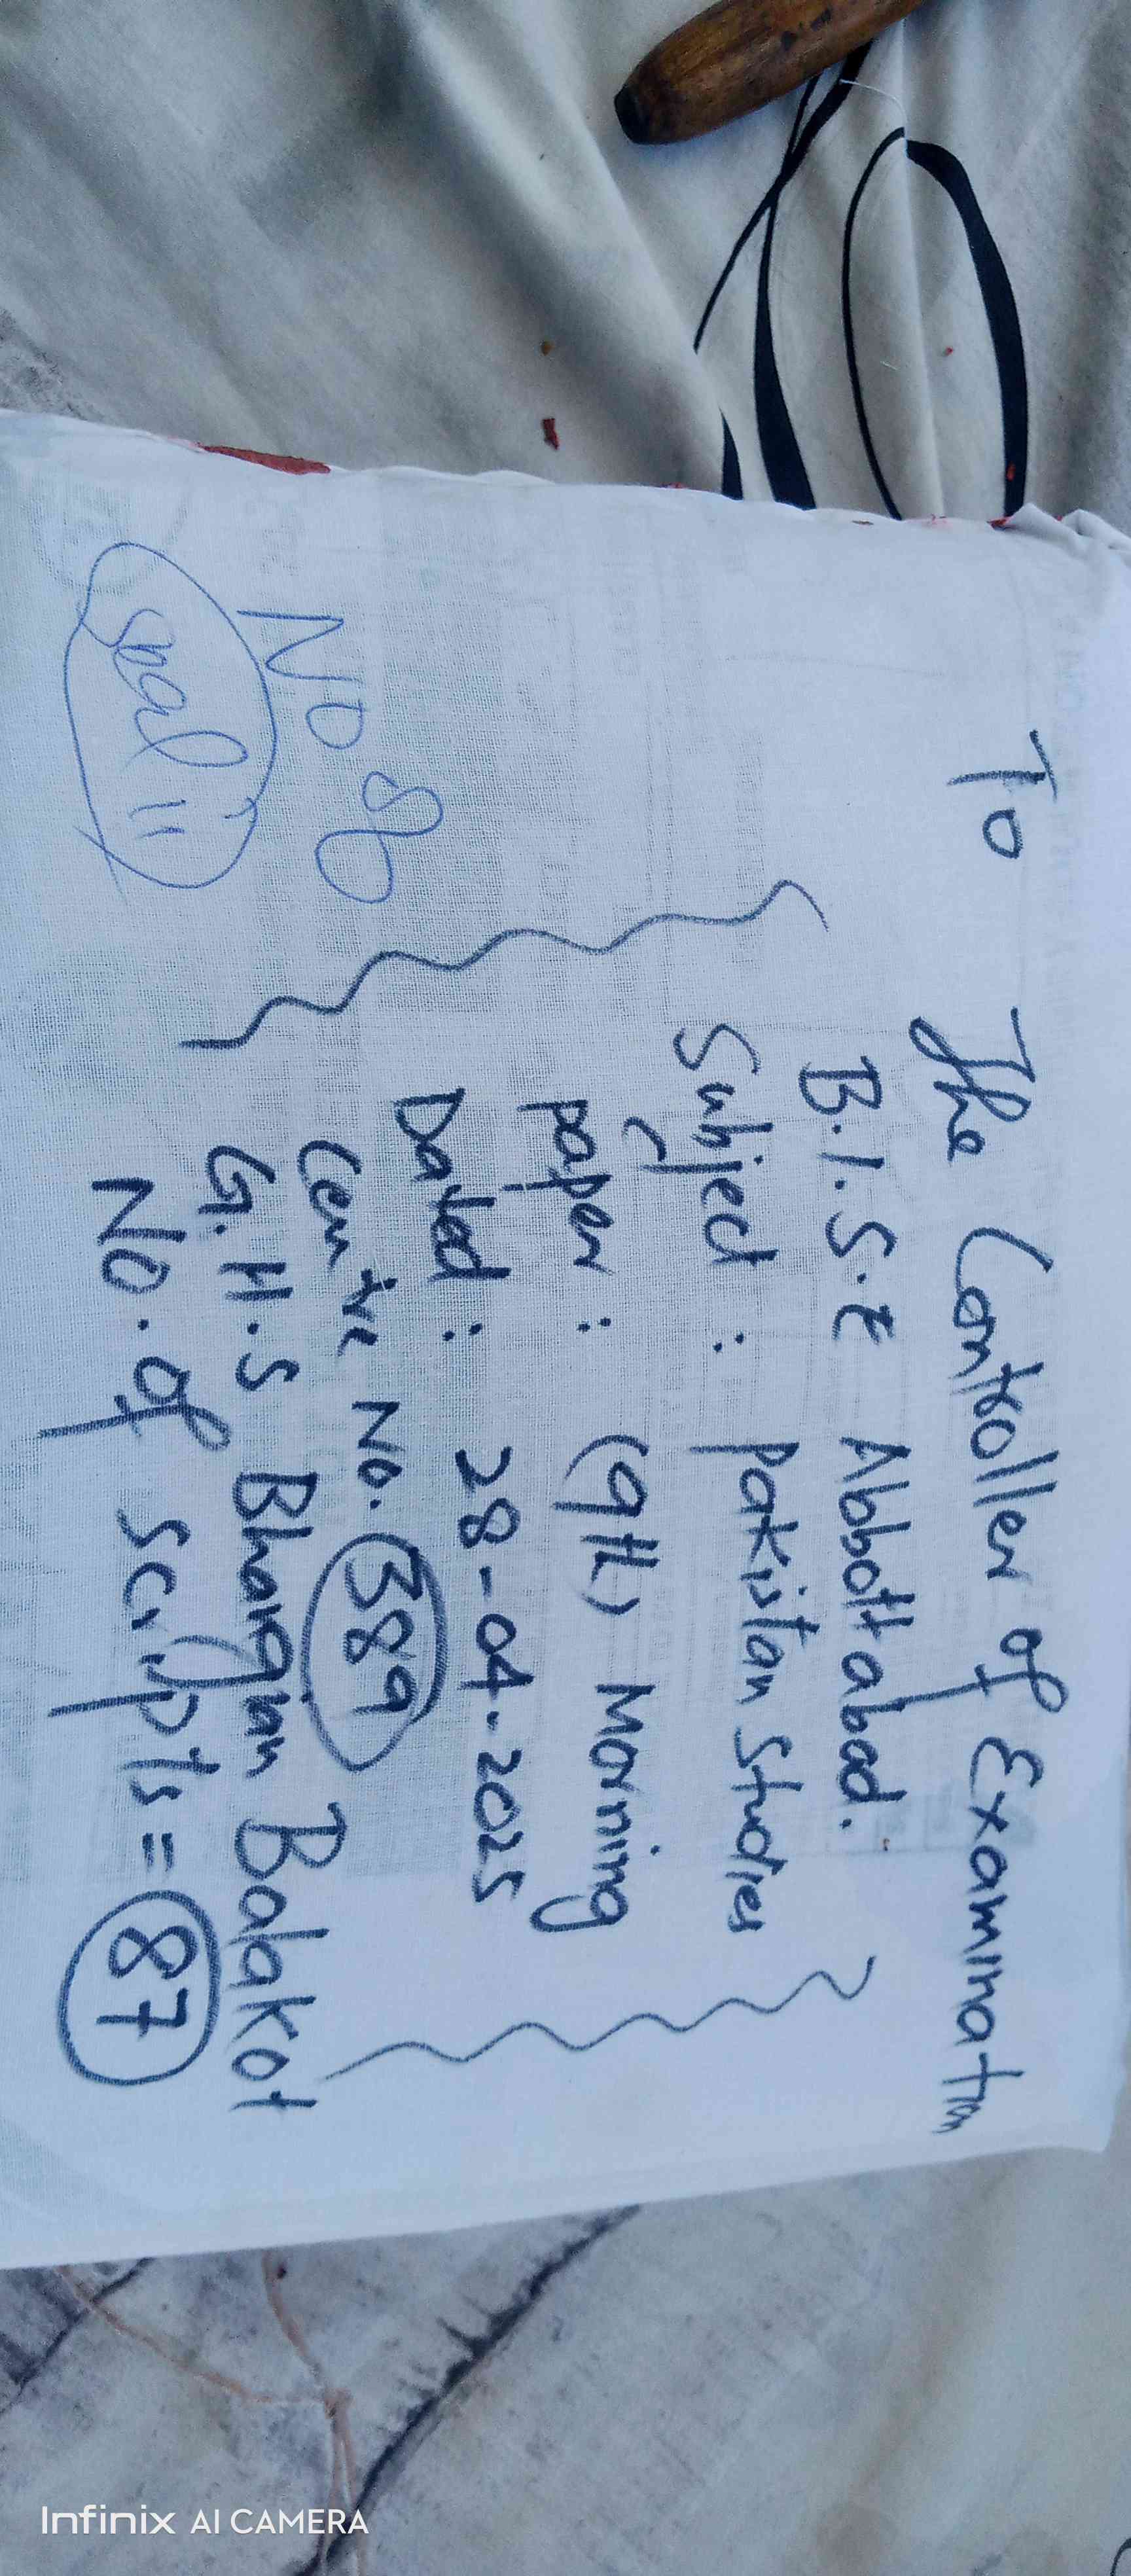 To
The Controller of Examination
B.I.S.E Abbottabad.
Subject : Pakistan Studies
paper : (9th) Morning
Dated : 28-04-2025
Centre No. 389
G.H.S Bhangian Balakot
No. of scripts = 87
No 8
Seal 11
Infinix AI CAMERA